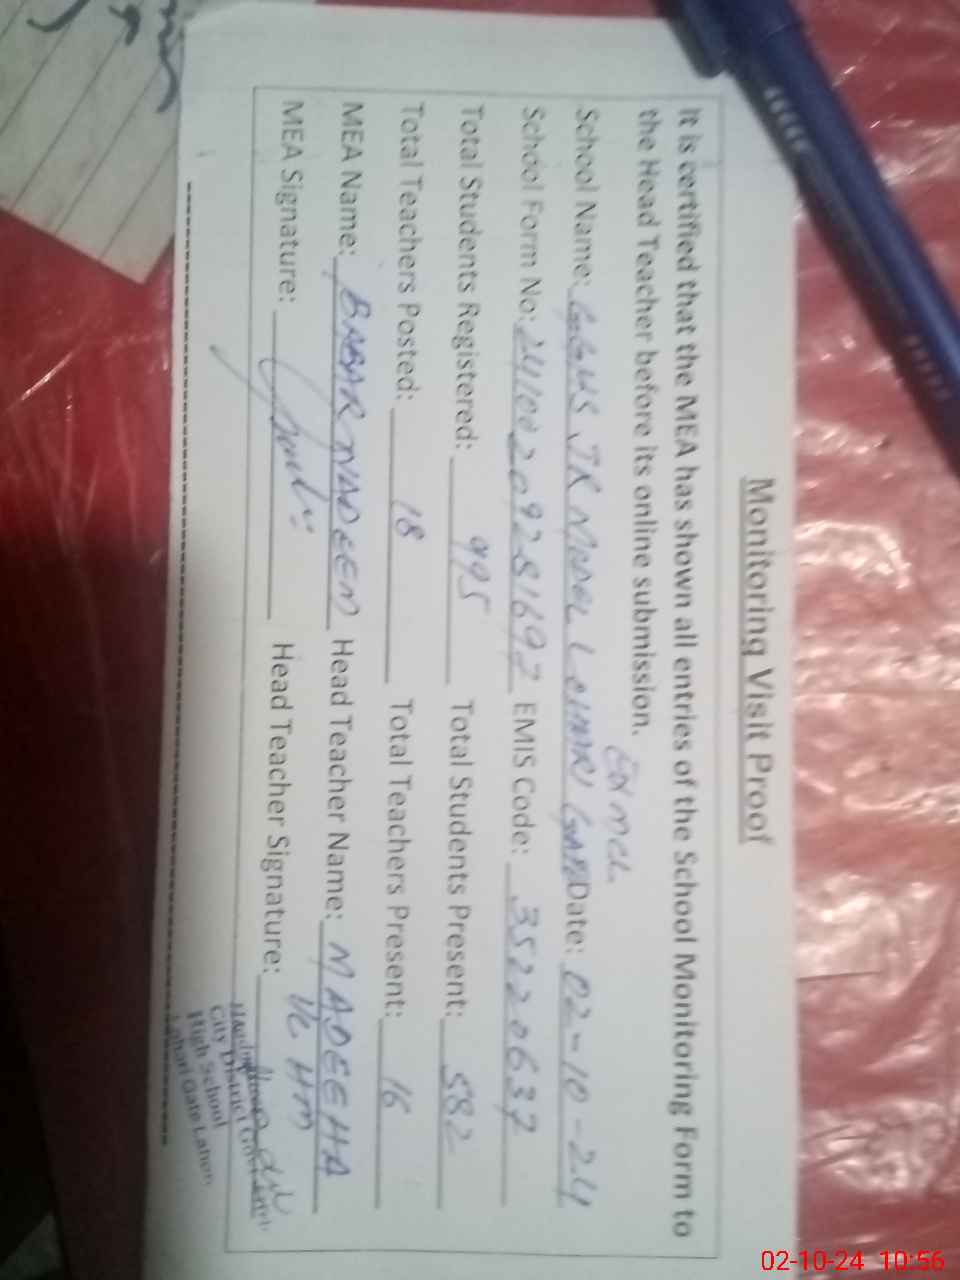 Monitoring Visit Proof
It is certified that the MEA has shown all entries of the School Monitoring Form to
the Head Teacher before its online submission.
School Name: GGHS JR MODEL LOHARI GATE Date: 02-10-24
School Form No: EMIS Code: 35220637
Total Students Registered: 995 Total Students Present: 582
Total Teachers Posted: 18 Total Teachers Present: 16
MEA Name: BABAR NADEEM Head Teacher Name: MADEEHA
MEA Signature: Head Teacher Signature:
City District
High School
Lohari Gate Lahore
02-10-24 10:56